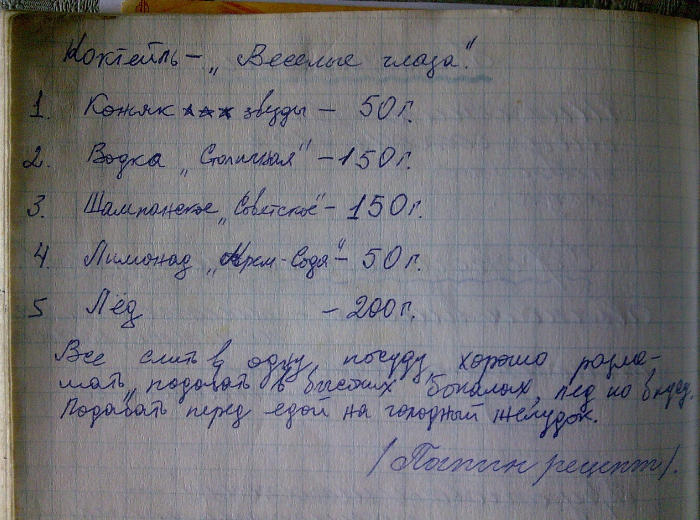 Коктейль - „Веселые глаза".
1. Коньяк ★★★ звезды - 50 г.
2. Водка „Столичная" - 150 г.
3. Шампанское „Советское" - 150 г.
4. Лимонад „Крем-Сода" - 50 г.
5 Лёд - 200 г.
Все слить в одну посуду, хорошо разме-
шать, подавать в высоких бокалах, лед по вкусу.
Подавать перед едой на голодный желудок.
/Папин рецепт/.